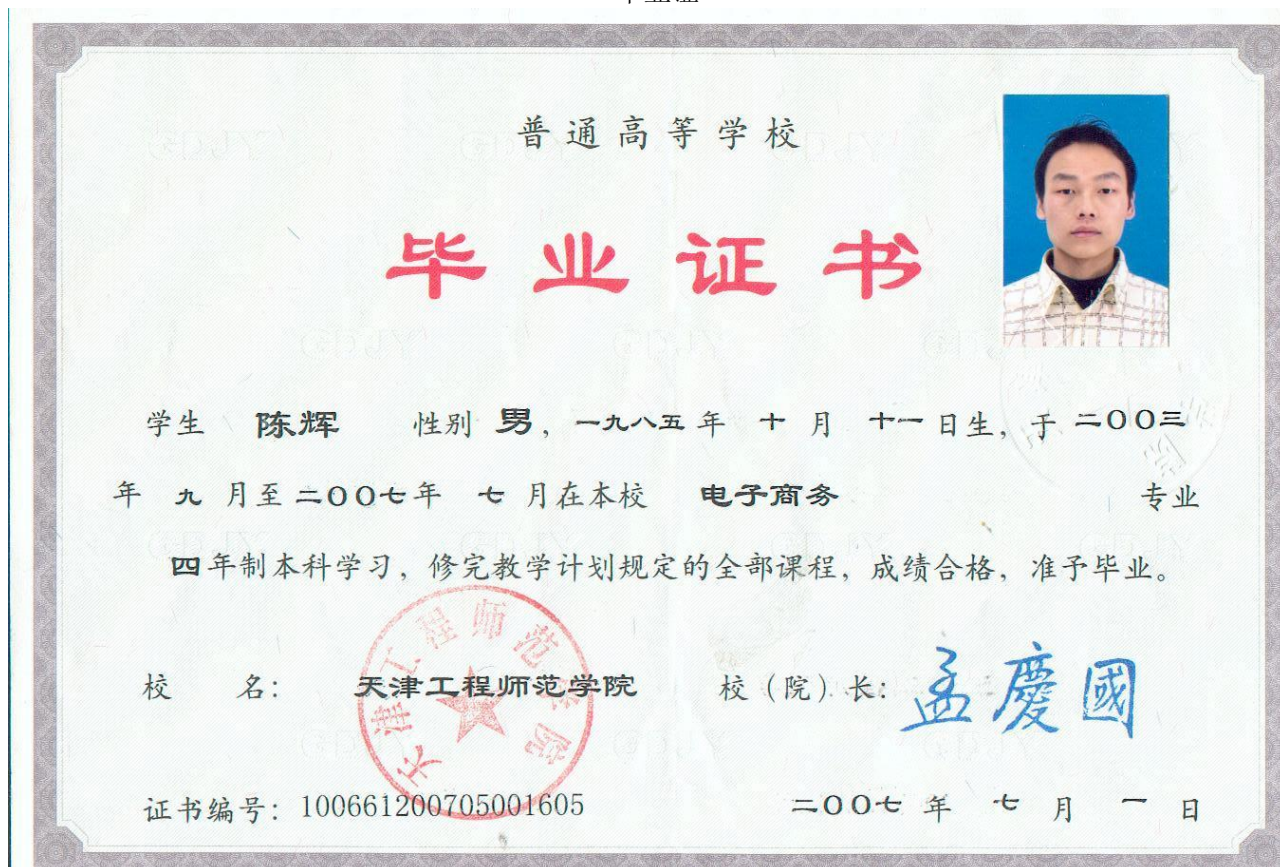 普通高等学校
毕业证书
学生 陈辉 性别 男，一九八五 年 十 月 十一 日生，于 二〇〇三
年 九 月至 二〇〇七年 七 月在本校 电子商务 专业
四年制本科学习，修完教学计划规定的全部课程，成绩合格，准予毕业。
天津工程师范学院
校 名： 天津工程师范学院 校（院）长： 孟慶國
证书编号：100661200705001605 二〇〇七 年 七 月 一 日